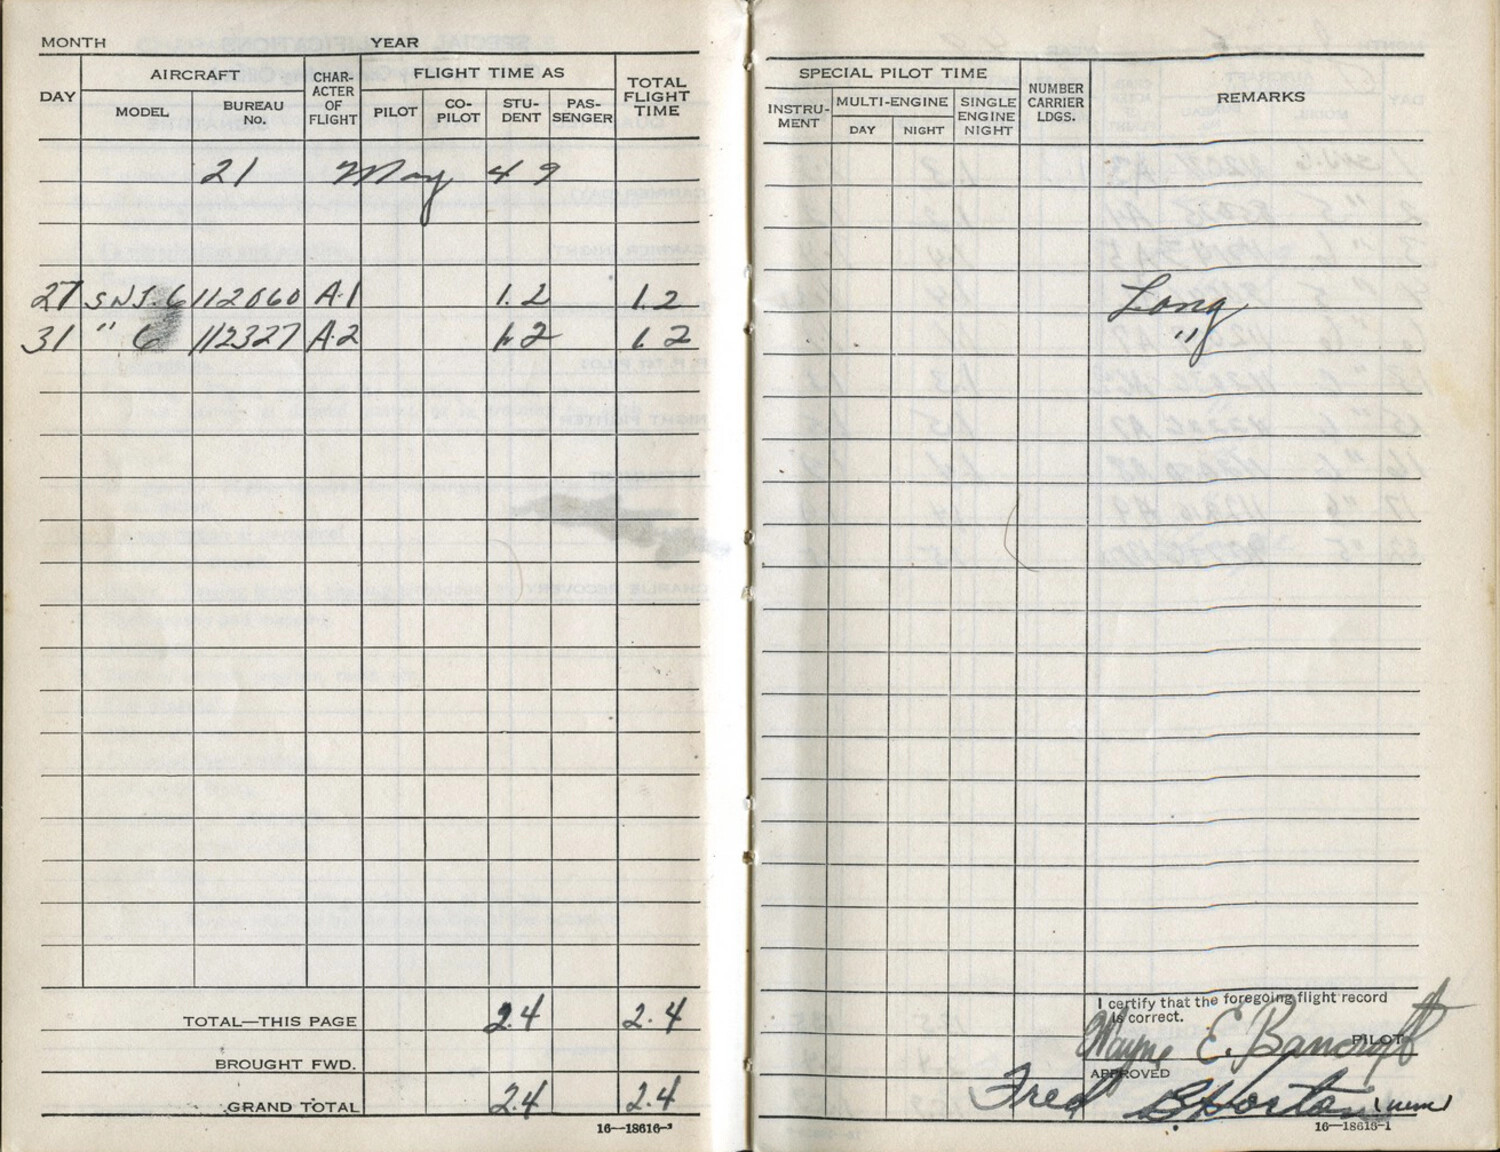 MONTH YEAR
DAY AIRCRAFT CHAR-ACTER OF FLIGHT FLIGHT TIME AS TOTAL FLIGHT TIME
MODEL BUREAU NO. PILOT CO-PILOT STU-DENT PAS-SENGER
21 May 49
27 SNJ-6 112060 A-1 1.2 1.2
31 " 6 112327 A-2 1.2 1.2
TOTAL—THIS PAGE 2.4 2.4
BROUGHT FWD.
GRAND TOTAL 2.4 2.4
16—18616-
SPECIAL PILOT TIME NUMBER CARRIER LDGS. REMARKS
INSTRU-MENT MULTI-ENGINE SINGLE ENGINE NIGHT
DAY NIGHT
Long
"
I certify that the foregoing flight record
is correct.
Wayne E. Bancroft PILOT
APPROVED
Fred B Horton
16—18616-1